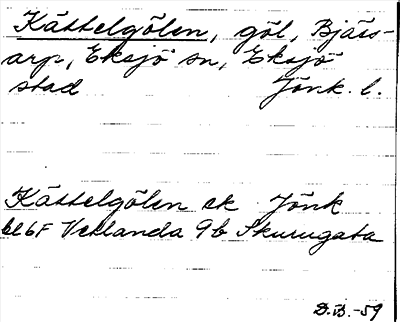 Kättelgölen, göl, Bjärs-
arp, Eksjö sn, Eksjö
stad Jönk. l.
Kättelgölen ek Jönk
bl 6F Vetlanda 9b Skurugata
D.B. -59